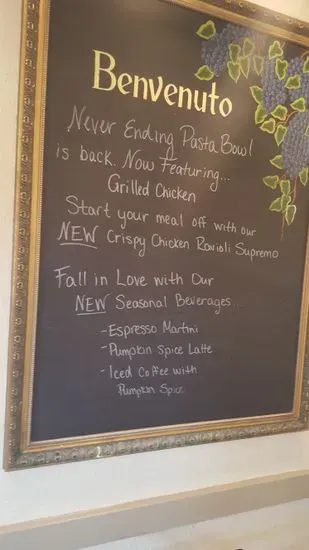 Benvenuto
Never Ending Pasta Bowl
is back. Now Featuring...
Grilled Chicken
Start your meal off with our
NEW Crispy Chicken Ravioli Supremo
Fall in Love with Our
NEW Seasonal Beverages...
-Espresso Martini
-Pumpkin Spice Latte
-Iced Coffee with
Pumpkin Spice